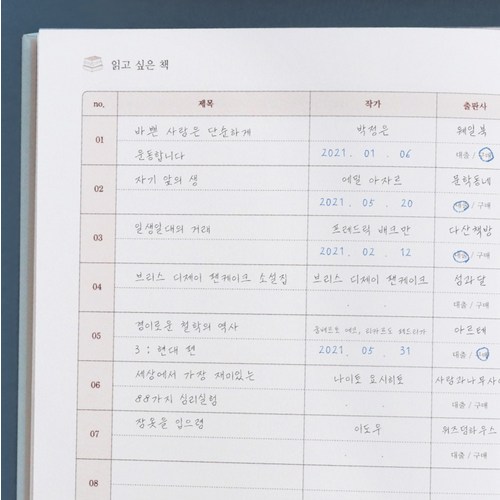 읽고 싶은 책
no. 제목 작가 출판사
01 바쁜 사람은 단순하게 박정은 웨일북
운동합니다 2021. 01. 06 대출 / 구매
02 자기 앞의 생 에밀 아자르 문학동네
2021. 05. 20 대출 / 구매
03 일생일대의 거래 프레드릭 배크만 다산책방
2021. 02. 12 대출 / 구매
04 브리스 디제이 팬케이크 소설집 브리스 디제이 팬케이크 섬과달
. . 대출 / 구매
05 경이로운 철학의 역사 움베르토 에코, 리카르도 페드리가 아르테
3 : 현대 편 2021. 05. 31 대출 / 구매
06 세상에서 가장 재미있는 나이토 요시히토 사람과나무사이
88가지 심리실험 . . 대출 / 구매
07 잠옷을 입으렴 이도우 위즈덤하우스
. . 대출 / 구매
08